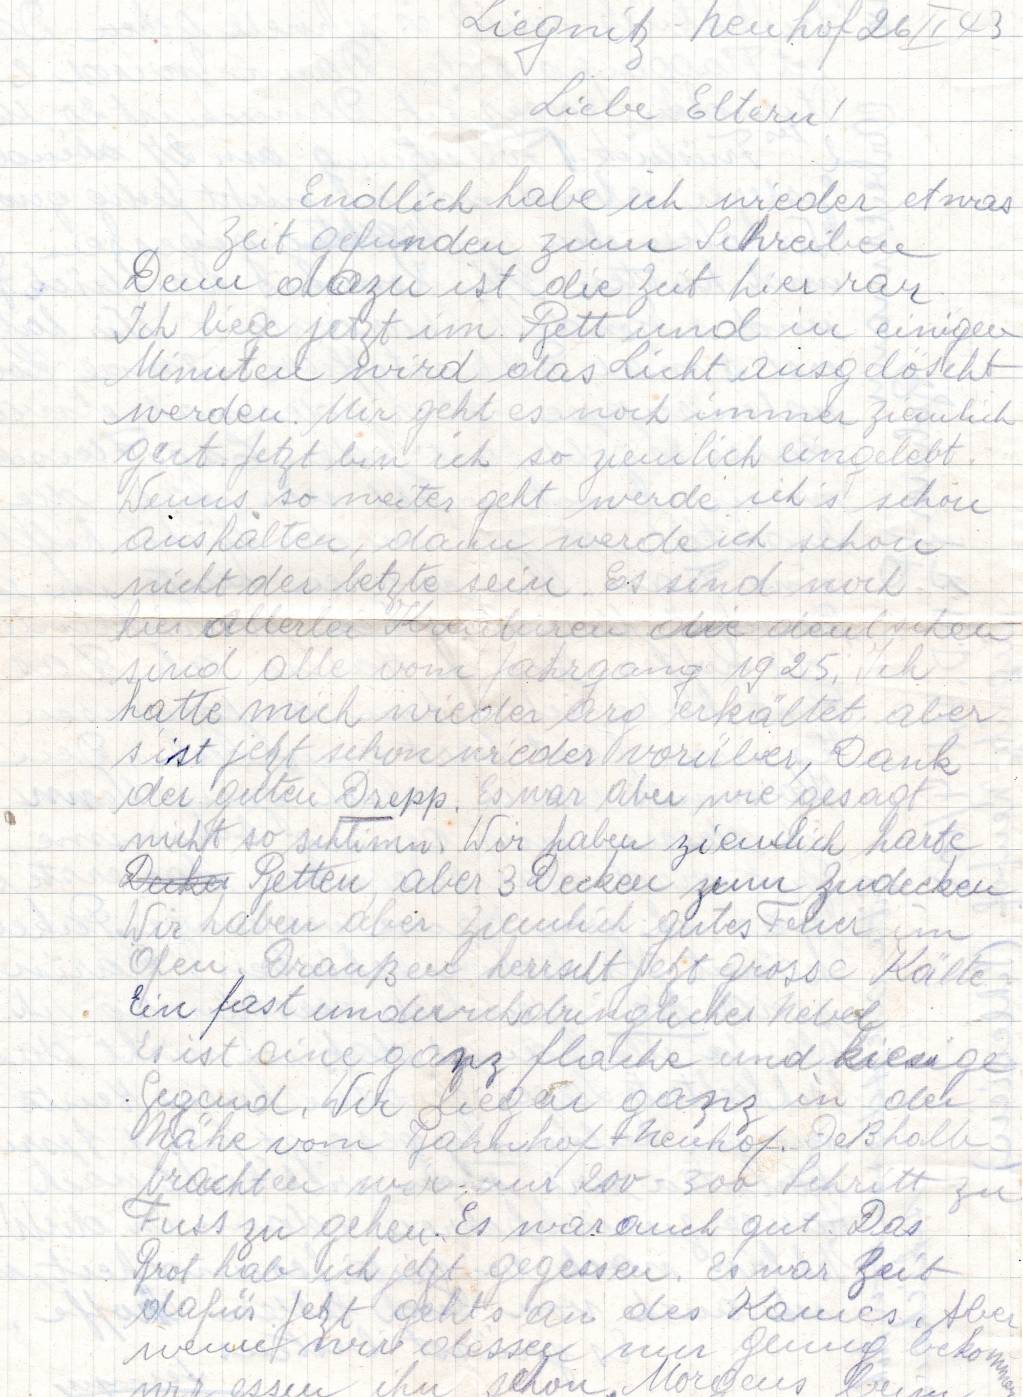 Liegnitz-Neuhof 26 II 43
Liebe Eltern!
Endlich habe ich wieder etwas
Zeit gefunden zum Schreiben
Denn dazu ist die Zeit hier rar
Ich liege jetzt im Bett und in einigen
Minuten wird das Licht ausgelöscht
werden. Mir geht es noch immer ziemlich
gut. Jetzt bin ich so ziemlich eingelebt.
Wenns so weiter geht werde ich's schon
aushalten, dann werde ich schon
nicht der letzte sein. Es sind noch
hier allerlei Kreaturen die deutschen
sind alle vom Jahrgang 1925. Ich
hatte mich wieder arg erkältet aber
s'ist jetzt schon wieder vorüber, Dank
der guten Drepp. Es war aber wie gesagt
nicht so schlimm. Wir haben ziemlich harte
Betten, aber 3 Decken zum Zudecken
Wir haben aber ziemlich gutes Feuer im
Ofen. Draußen herrscht jetzt grosse Kälte
Ein fast undurchdringlicher Nebel
Es ist eine ganz flache und kiesige
Gegend. Wir liegen ganz in der
Nähe vom Bahnhof Neuhof. Deßhalb
brauchten wir nur 200-300 Schritt zu
Fuss zu gehen. Es war auch gut. Das
Brot hab ich jetzt gegessen. Es war Zeit
dafür Jetzt gehts an des Aber
wenn wir dessen nur genug bekommen
wir essen ihn schon. Morgens